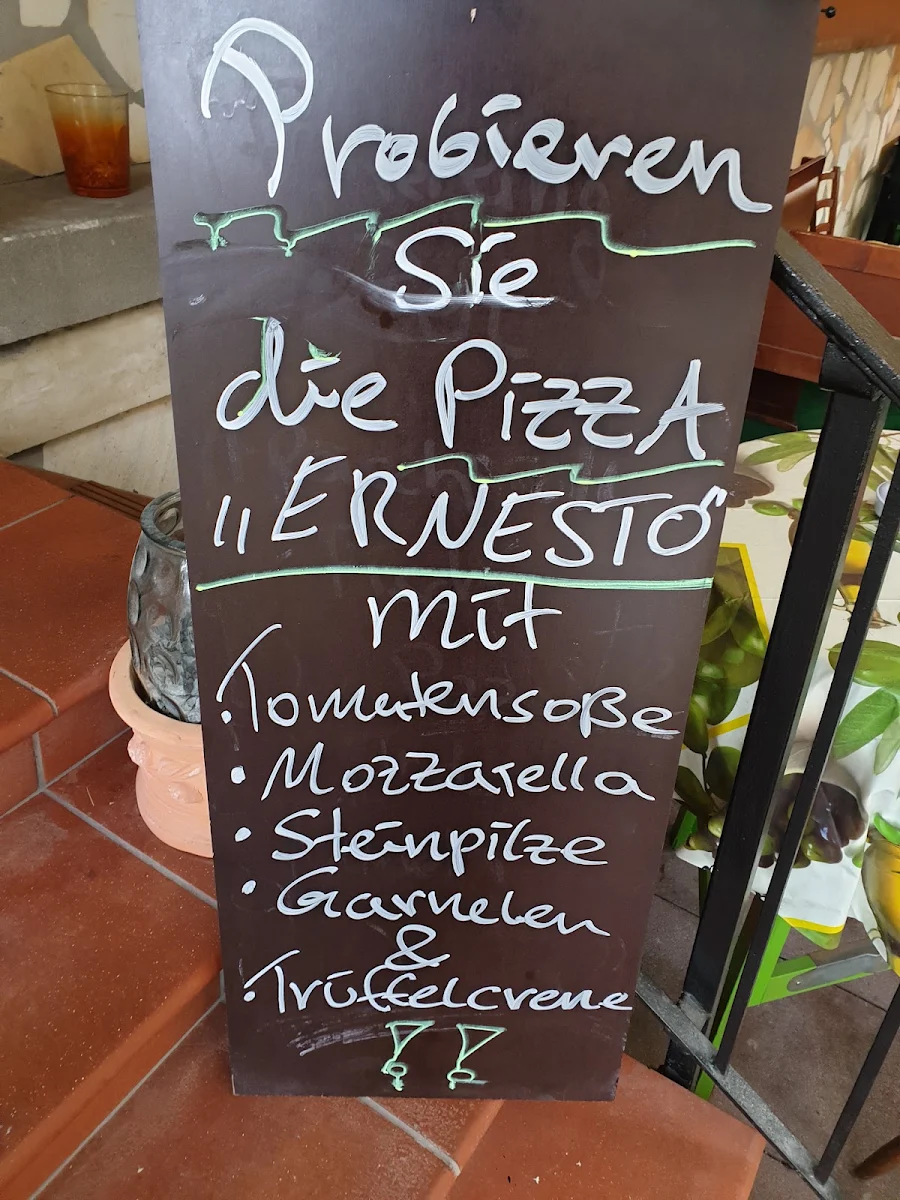 Probieren
Sie
die PizzA
„ERNESTO“
mit
• Tomatensoße
• Mozzarella
• Steinpilze
• Garnelen
&
• Trüffelcreme
!!